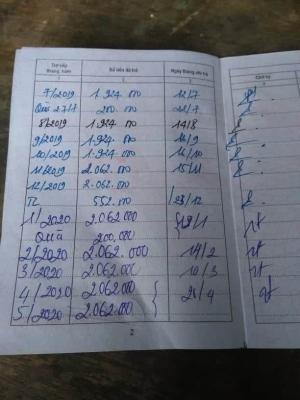 Trợ cấp tháng, năm Số tiền đã trả Ngày tháng năm trả Chữ ký
1 2 3
7/2019 1.924.000 12/7
Quà 27/7 200.000 22/7
8/2019 1.924.000 14/8
9/2019 1.924.000 16/9
10/2019 1.924.000 16/10
11/2019 2.062.000 15/11
12/2019 2.062.000
TL 552.000 23/12
1/2020 2.062.000 19/1
Quà 200,000
2/2020 2.062.000 14/2
3/2020 2.062.000 10/3
4/2020 2.062.000 25/4
5/2020 2.062.000
2